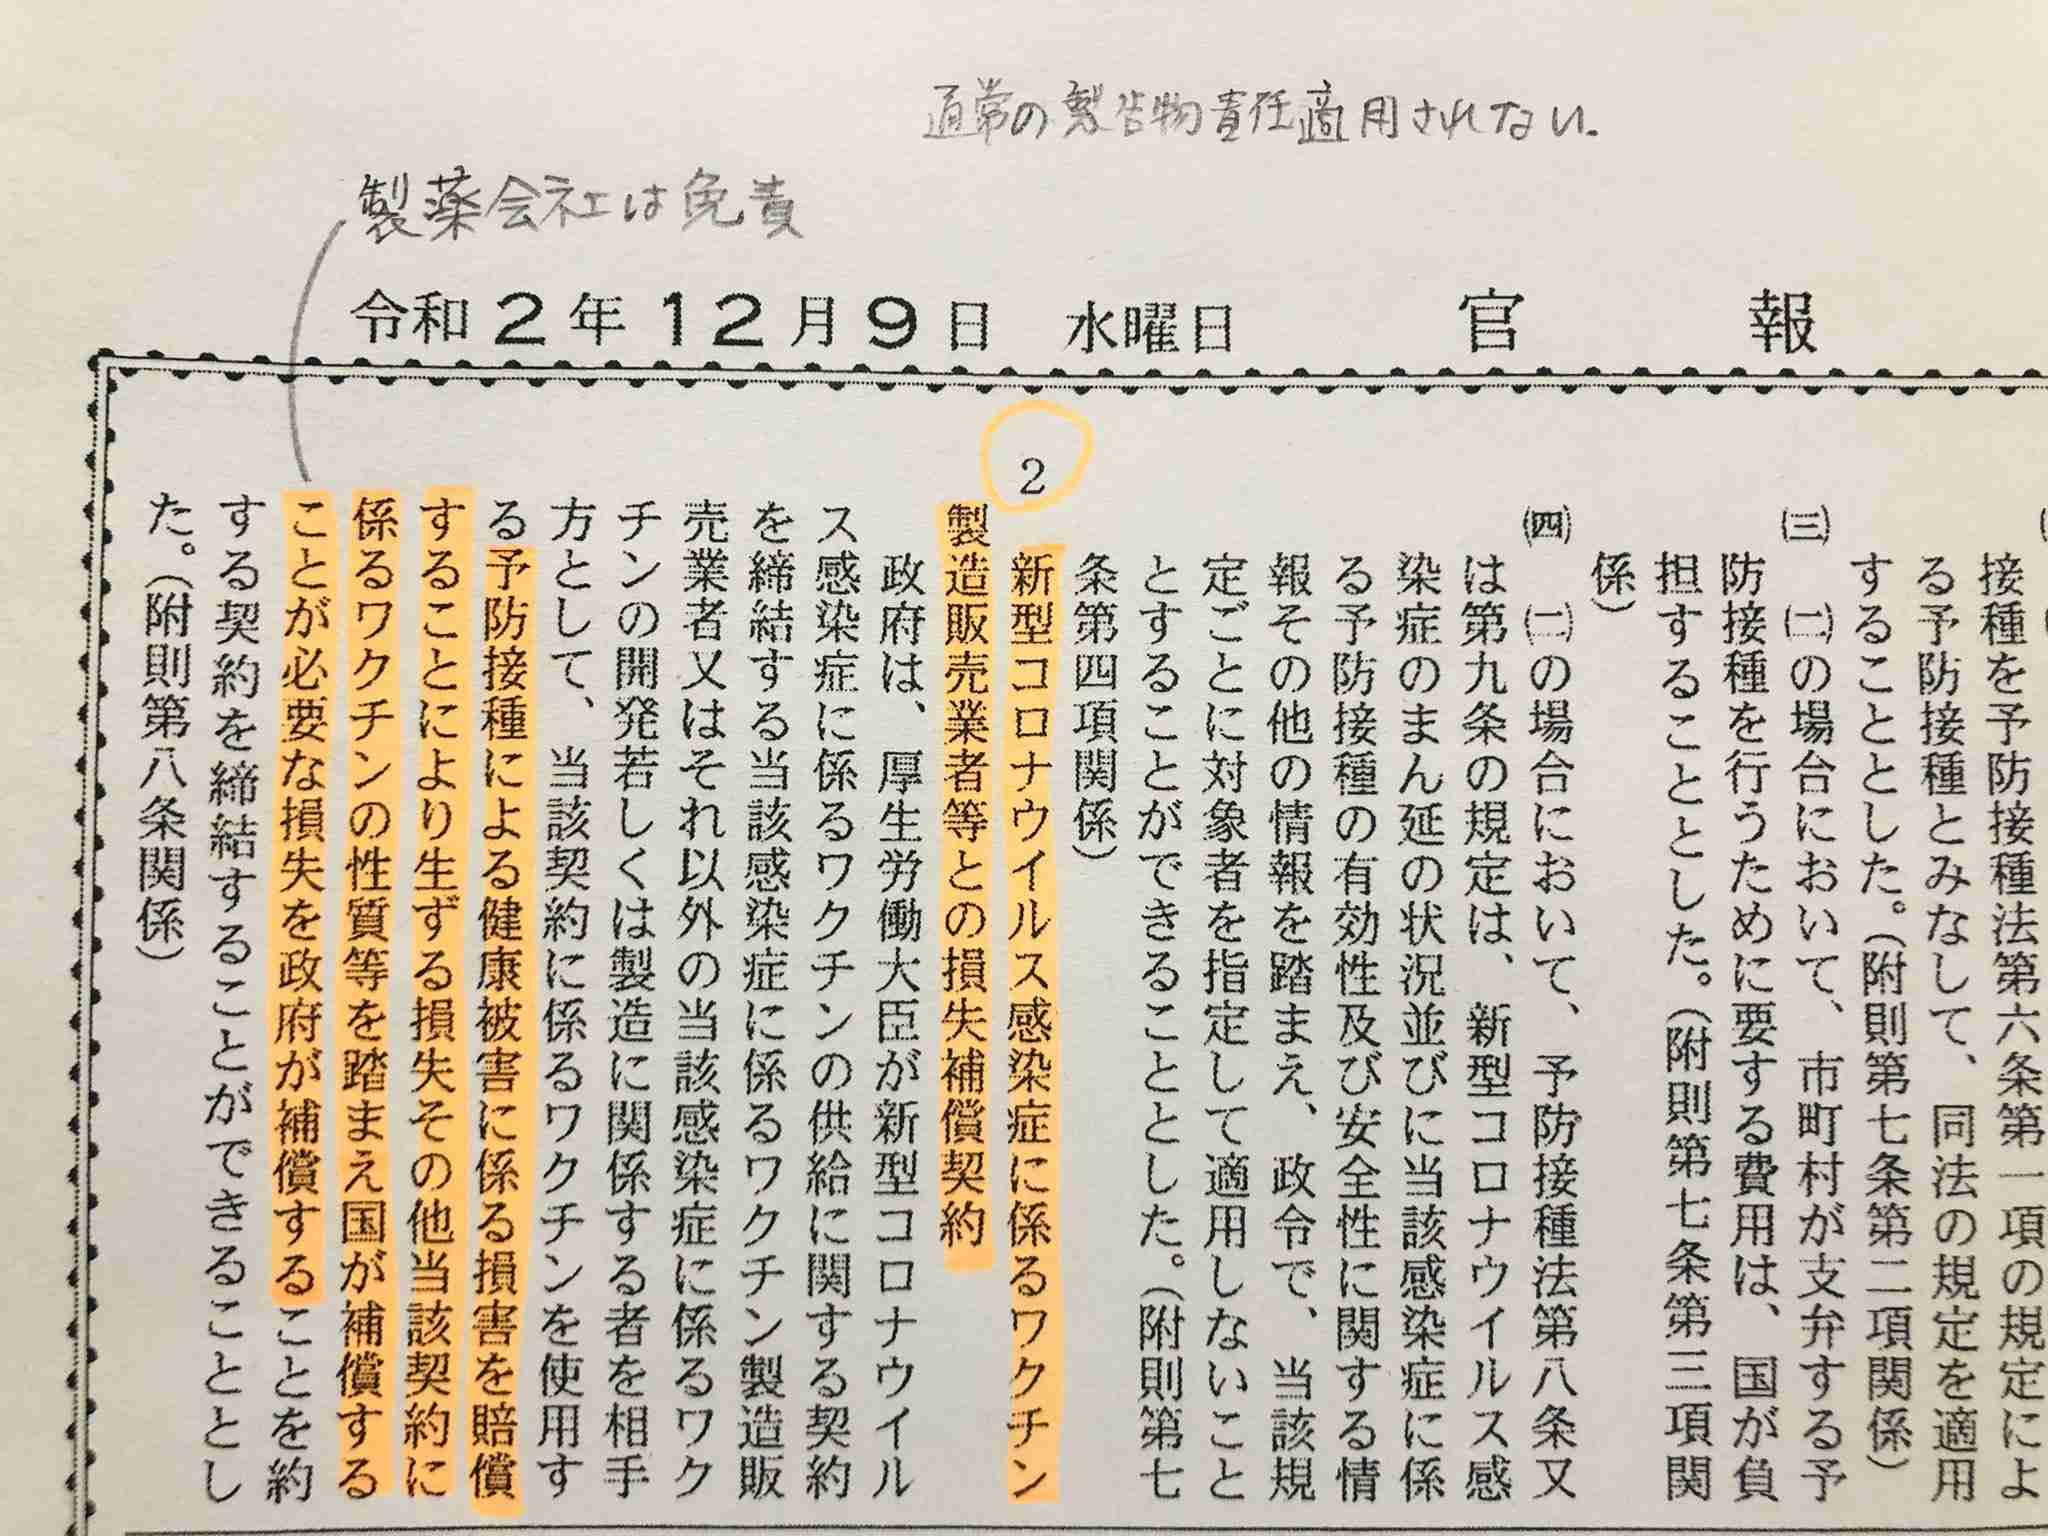 通常の製造物責任適用されない.
製薬会社は免責
令和2年12月9日 水曜日 官報
接種を予防接種法第六条第一項の規定によ
る予防接種とみなして、同法の規定を適用
することとした。（附則第七条第二項関係）
㈢ ㈡の場合において、市町村が支弁する予
防接種を行うために要する費用は、国が負
担することとした。（附則第七条第三項関
係）
㈣ ㈡の場合において、予防接種法第八条又
は第九条の規定は、新型コロナウイルス感
染症のまん延の状況並びに当該感染症に係
る予防接種の有効性及び安全性に関する情
報その他の情報を踏まえ、政令で、当該規
定ごとに対象者を指定して適用しないこと
とすることができることとした。（附則第七
条第四項関係）
2 新型コロナウイルス感染症に係るワクチン
製造販売業者等との損失補償契約
政府は、厚生労働大臣が新型コロナウイル
ス感染症に係るワクチンの供給に関する契約
を締結する当該感染症に係るワクチン製造販
売業者又はそれ以外の当該感染症に係るワク
チンの開発若しくは製造に関係する者を相手
方として、当該契約に係るワクチンを使用す
る予防接種による健康被害に係る損害を賠償
することにより生ずる損失その他当該契約に
係るワクチンの性質等を踏まえ国が補償する
ことが必要な損失を政府が補償することを約
する契約を締結することができることとし
た。（附則第八条関係）